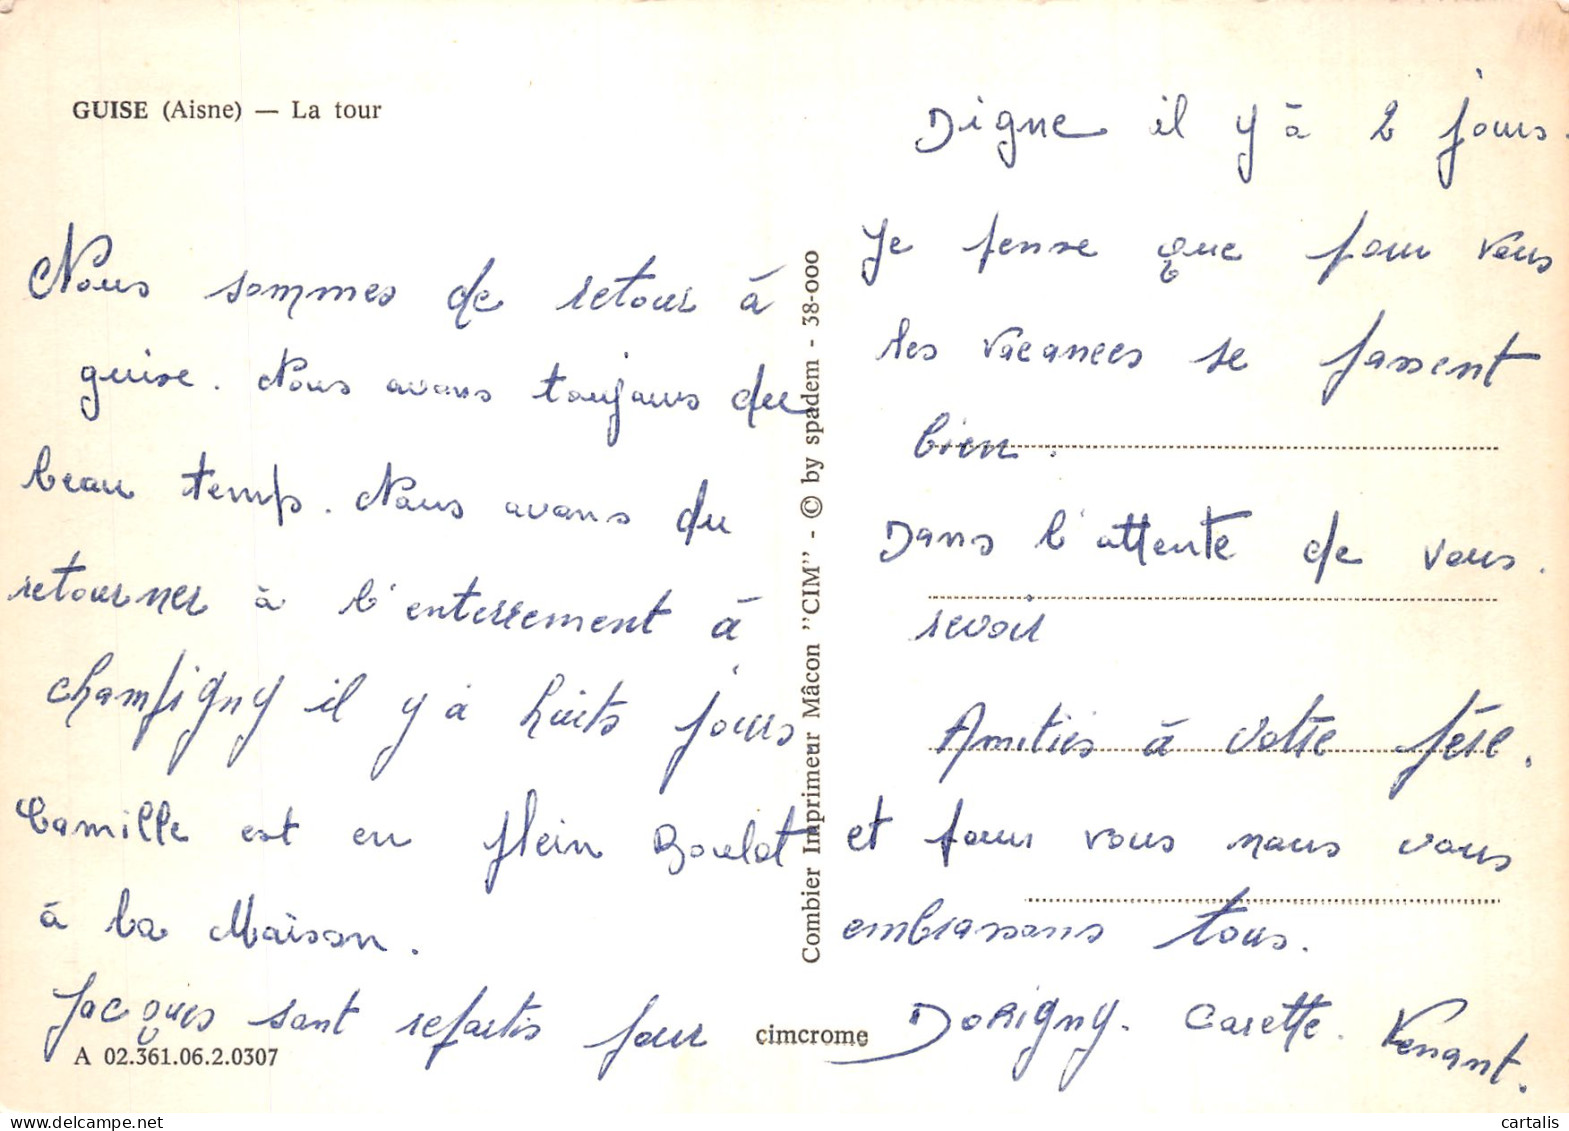 GUISE (Aisne) — La tour
Nous sommes de retour à
guise. Nous avons toujours du
beau temp. Nous avons du
retourner à l'enterrement à
champigny il y à huits jours
Camille est en plein Boulot
à la Maison.
Jacques sont repartis pour
A 02.361.06.2.0307
Combier Imprimeur Mâcon "CIM" - © by spadem - 38-000
cimcrome
Digne il y à 2 jours.
Je pense que pour vous
les vacances se passent
bien.
Dans l'attente de vous.
revoir
Amitiés à votre père.
et pour vous nous vous
embrassons tous.
Dorigny. Carette. Venant.
cartalis